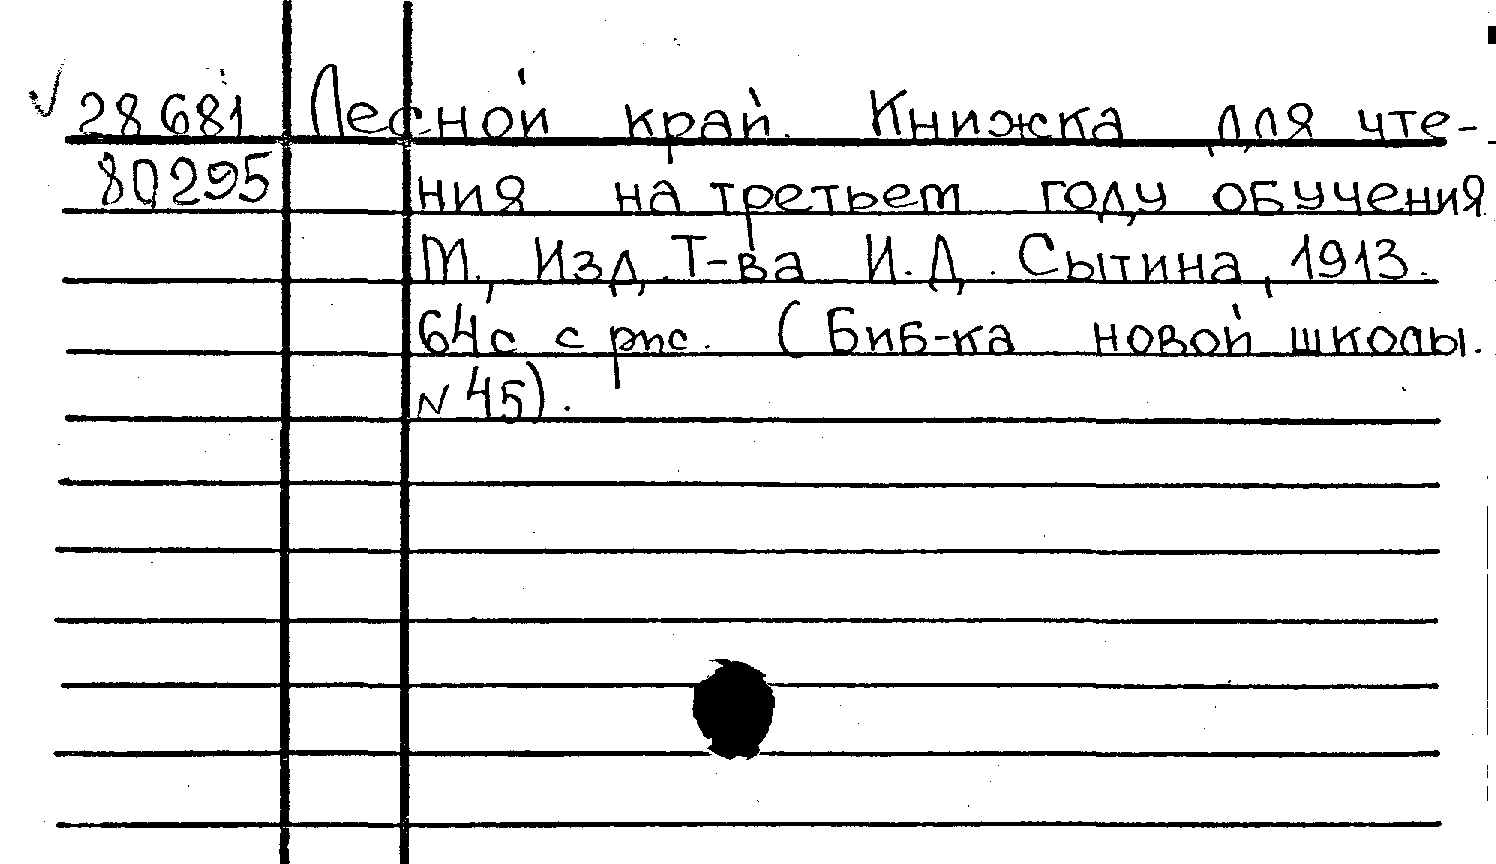 √ 28 681 Лесной край. Книжка для чте-
80295 ния на третьем году обучения
М., Изд. Т-ва И.Д. Сытина, 1913.
64с с рис. (Биб-ка новой школы.
N 45).